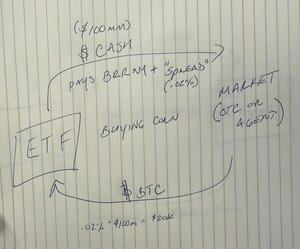 ($100mm)
$ CASH
PAYS BRRNY + "SPREAD"
(.02%)
MARKET
(OTC OR
AGENT)
BUYING CORN
ETF
$ BTC
.02% * $100m = $20K